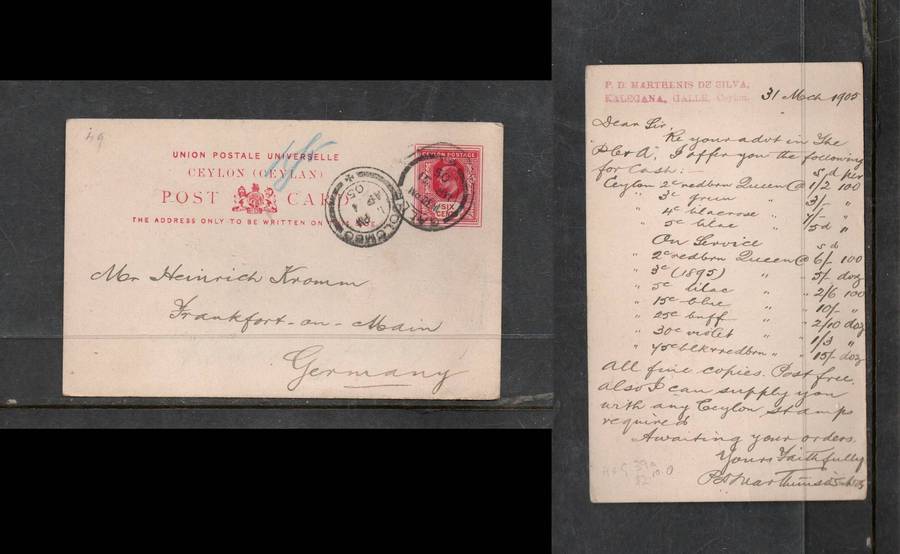 49
UNION POSTALE UNIVERSELLE
CEYLON (CEYLAN)
POST CARD
THE ADDRESS ONLY TO BE WRITTEN ON
CEYLON POSTAGE
SIX CENTS
GALLE
COLOMBO
4 PM
AP 4
05
Mr Heinrich Kromm
Frankfort-on-Main
Germany
P. D. MARTHENIS DE SILVA,
KALEGANA, GALLE, Ceylon.
31 Mch 1905
Dear Sir,
Re your advt in The
I offer you the following
for Cash:—
s d per
Ceylon 2c redbrn Queen @ 1/2 100
" 3c green " 3/- "
" 4c " "
" 5c lilac " 5d "
On Service s d
" 2c redbrn Queen @ 6/- 100
" 3c (1895) " 5/- doz
" 5c lilac " " 2/6 100
" 15c blue " " 10/- "
" 25c buff " " 2/10 doz
" 30c violet " " 1/3 "
" 45c blk & redbrn " " 15/- doz
All fine copies. Post free.
also I can supply you
with any Ceylon stamps
required
Awaiting your orders.
Yours Faithfully